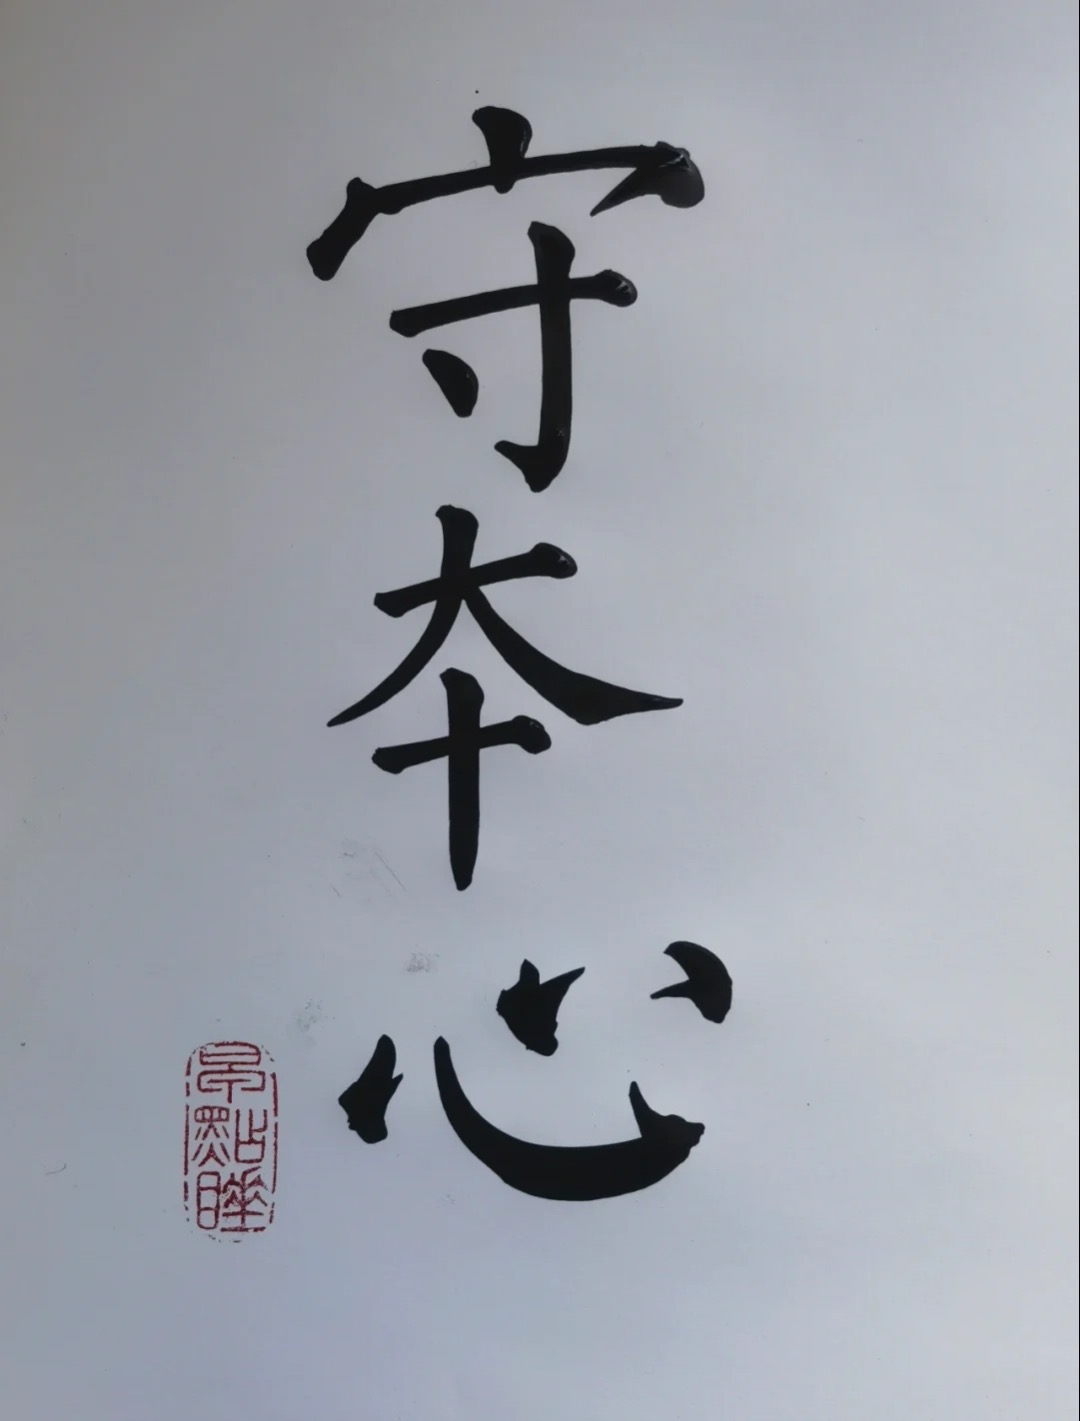 守本心